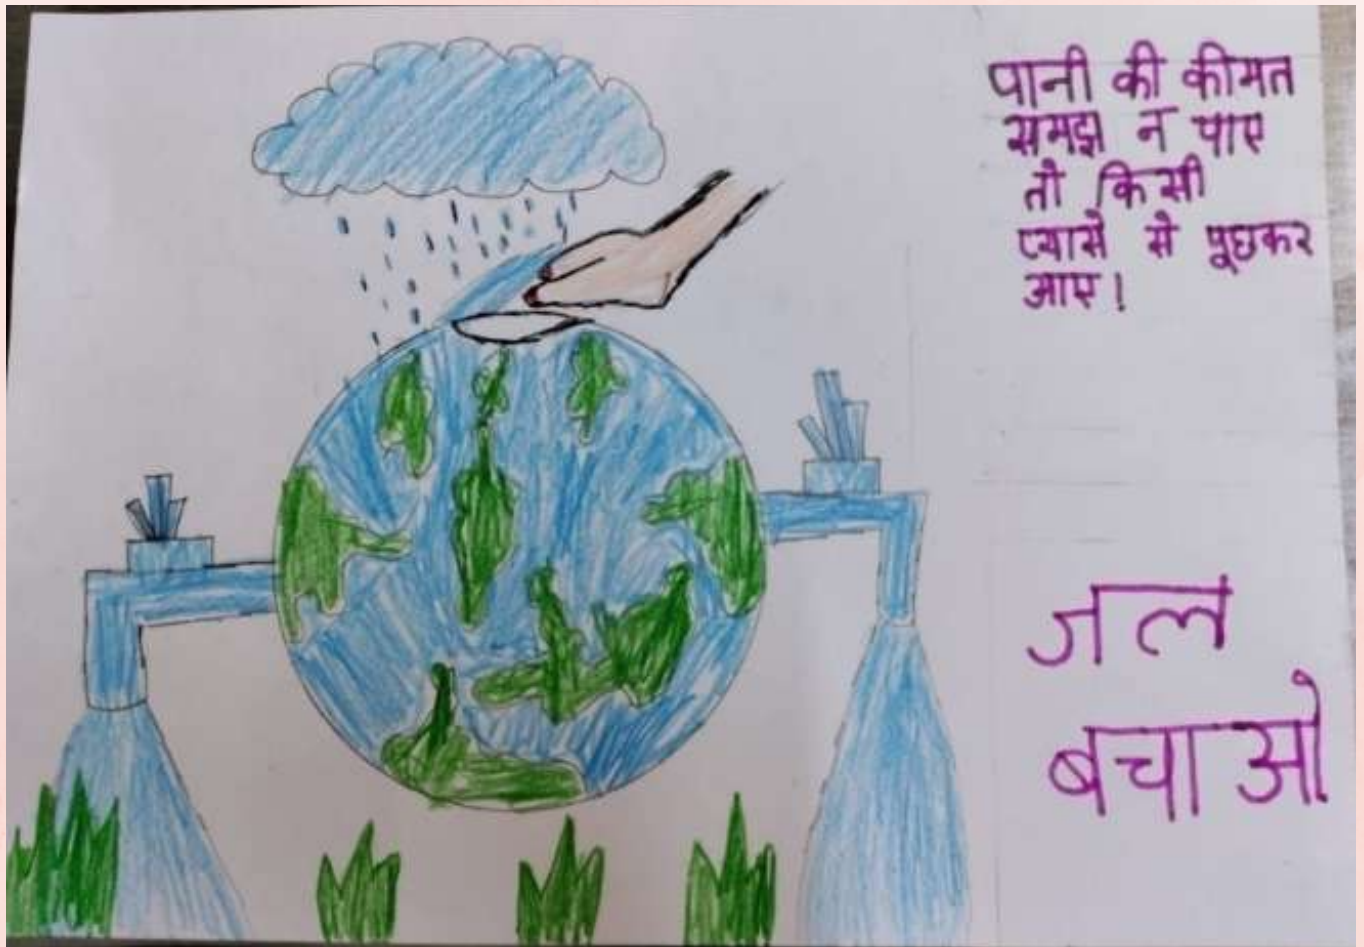 पानी की कीमत
समझ न पाए
तो किसी
प्यासे से पूछकर
आए!
जल
बचाओ